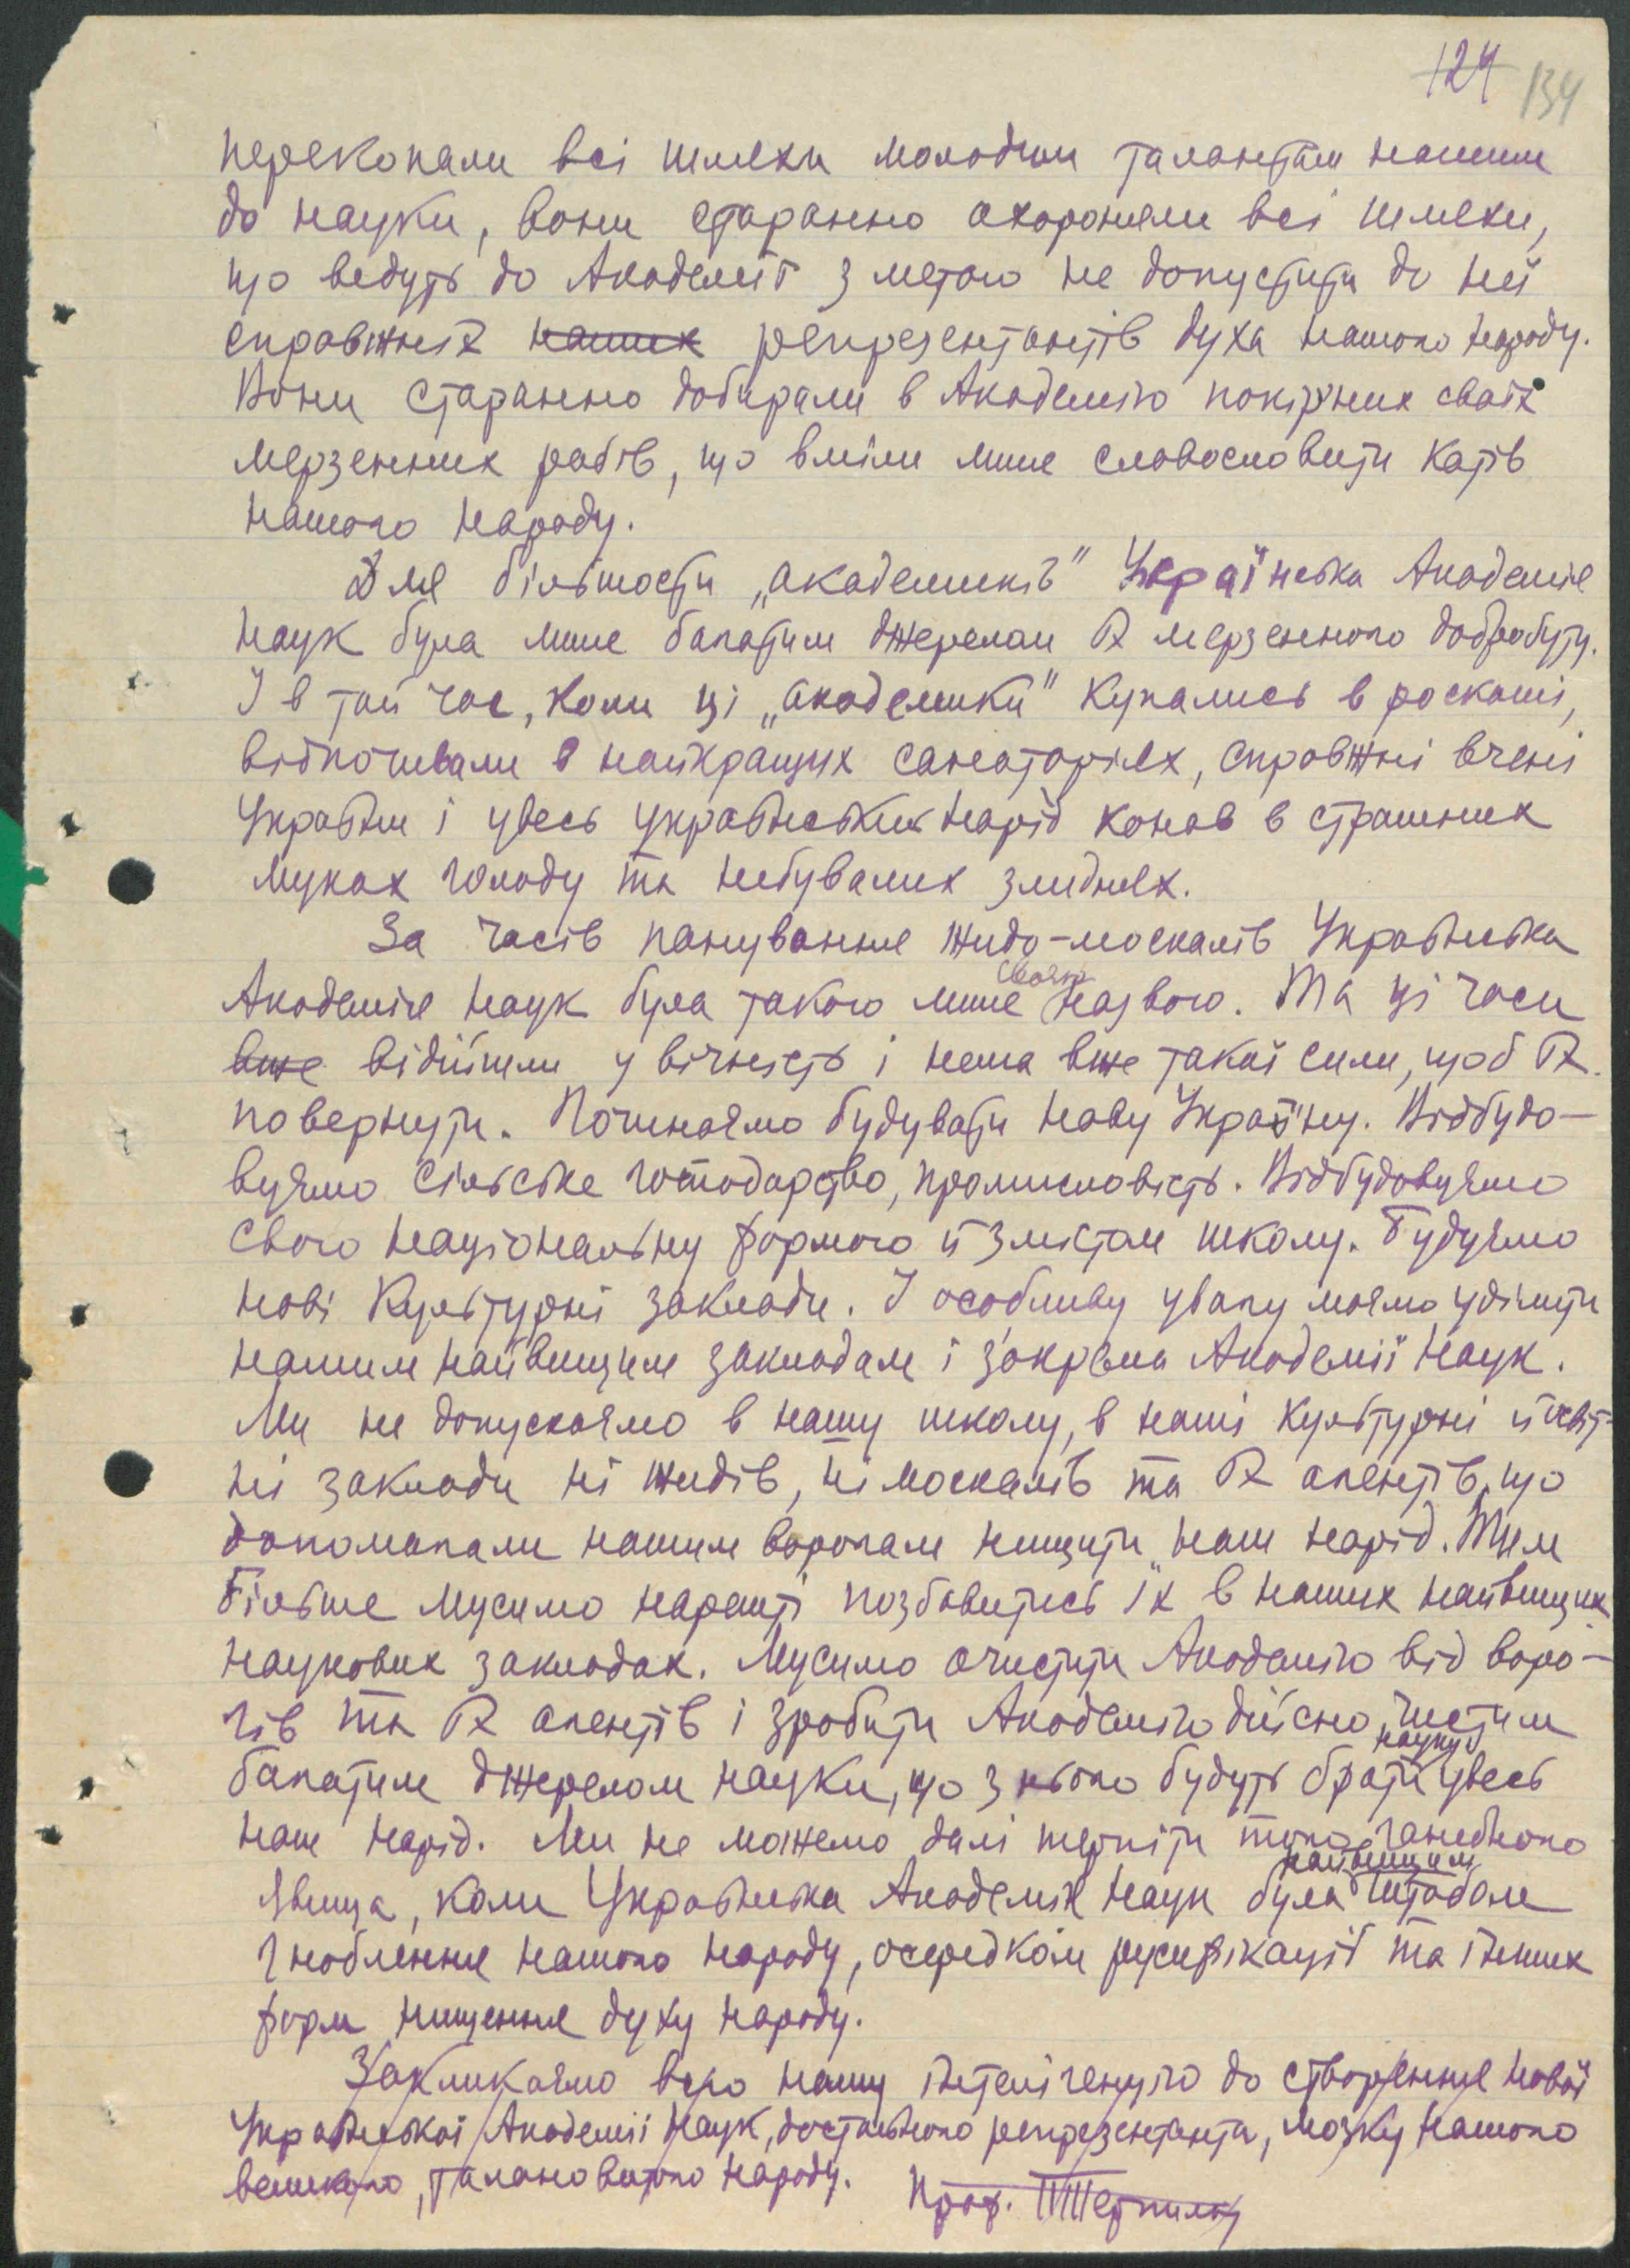 124 134
перекопали всі шляхи молодим талантам нашим
до науки, вони старанно охороняли всі шляхи,
що ведуть до Академії з метою не допустити до неї
справжніх наших репрезентантів духа нашого народу.
Вони старанно добирали в Академію покірних своїх
мерзенних рабів, що вміли лише славословити катів
нашого народу.
Для більшости „академиків" Українська Академія
Наук була лише багатим джерелом їх мерзенного добробуту.
І в той час, коли ці „академики" купались в роскоші,
відпочивали в найкращих санаторіях, справжні вчені
України і увесь український нарід конав в страшних
муках голоду та небувалих злиднях.
За часів панування жидо-москалів Українська
Академія Наук була такою лише своєю назвою. Та ці часи
вже відійшли у вічність і нема вже такої сили, щоб їх
повернути. Починаємо будувати нову Україну. Відбудо-
вуємо сільське господарство, промисловість. Відбудовуємо
свою національну формою й змістом школу. Будуємо
нові культурні заклади. І особливу увагу маємо уділити
нашим найвищим закладам і зокрема Академії Наук.
Ми не допускаємо в нашу школу, в наші культурні й освіт-
ні заклади ні жидів, ні москалів та їх агентів, що
допомагали нашим ворогам нищити наш нарід. Тим
більше мусимо нарешті позбавитись їх в наших найвищих
наукових закладах. Мусимо очистити Академію від воро-
гів та їх агентів і зробити Академію дійсно чистим
багатим джерелом науки, що з нього будуть брати науку увесь
наш нарід. Ми не можемо далі терпіти того ганебного
явища, коли Українська Академія Наук була найвищим штабом
гноблення нашого народу, осередком русифікації та інших
форм нищення духу народу.
Закликаємо всю нашу інтелігенцію до створення нової
Української Академії Наук, достойного репрезентанта, мозку нашого
великого, талановитого народу.
Проф.